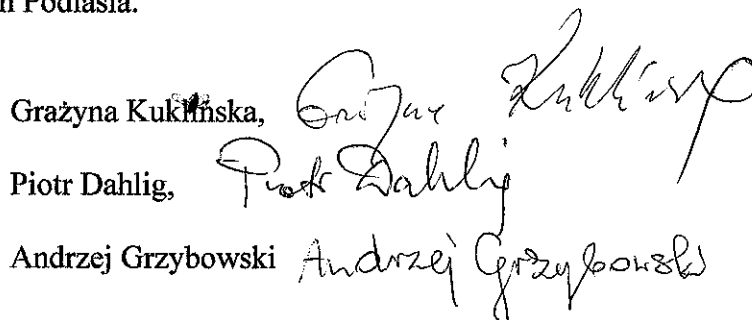 Podlasia.
Grażyna Kuklińska, Grażyna Kuklińska
Piotr Dahlig, Piotr Dahlig
Andrzej Grzybowski Andrzej Grzybowski